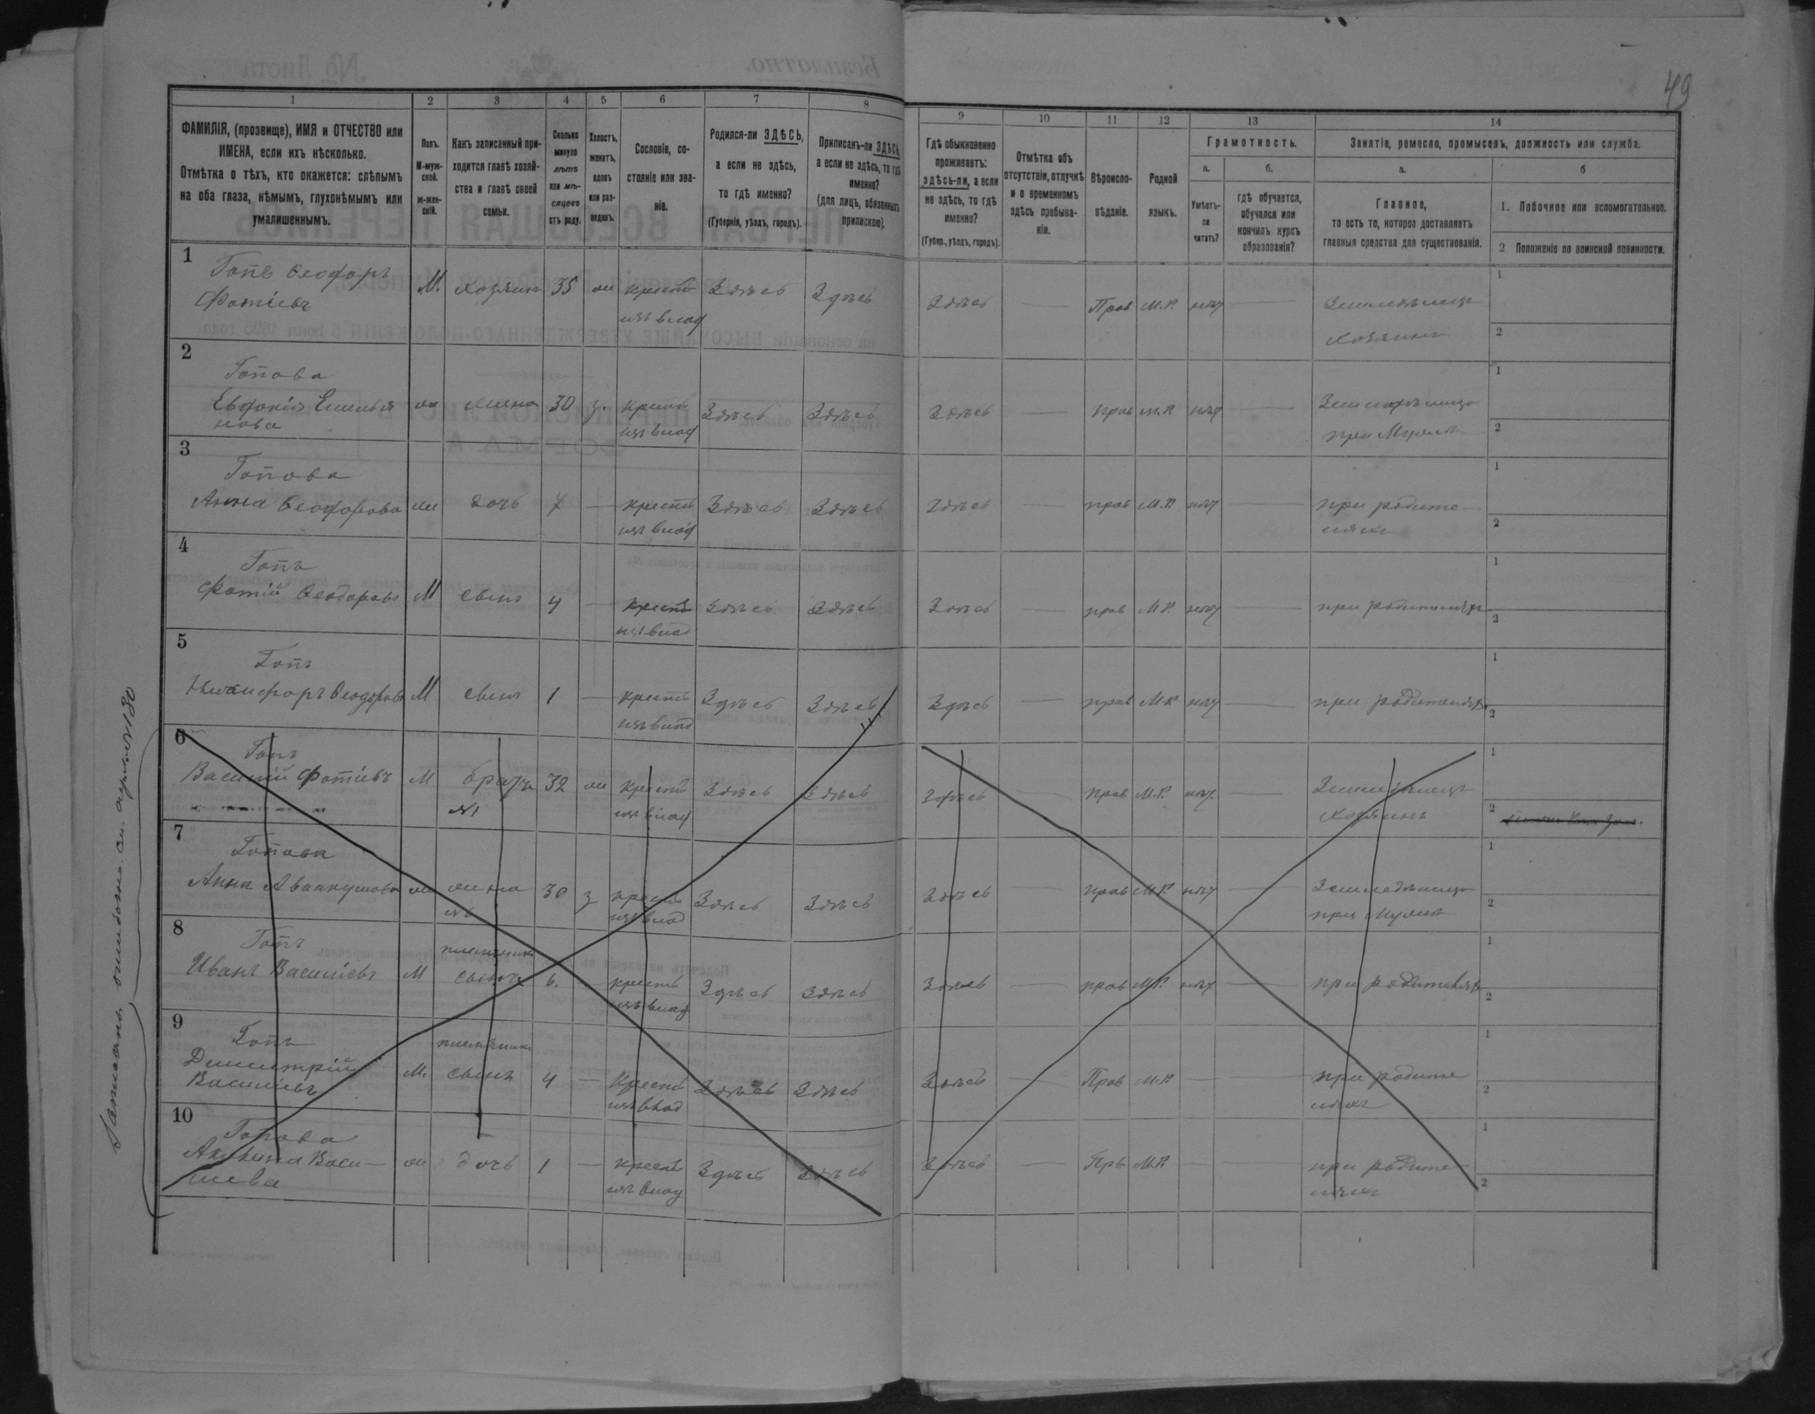 49
1 2 3 4 5 6 7 8 9 10 11 12 13 14
ФАМИЛІЯ, (прозвище), ИМЯ и ОТЧЕСТВО или
ИМЕНА, если ихъ нѣсколько.
Отмѣтка о тѣхъ, кто окажется: слѣпымъ
на оба глаза, нѣмымъ, глухонѣмымъ или
умалишеннымъ.
Полъ.
М-муж-
ской.
ж-жен-
скій.
Какъ записанный при-
ходится главѣ хозяй-
ства и главѣ своей
семьи.
Сколько
минуло
лѣтъ
или мѣ-
сяцевъ
отъ роду.
Холостъ,
женатъ,
вдовъ
или раз-
веденъ.
Сословіе, со-
стояніе или зва-
ніе.
Родился-ли ЗДѢСЬ,
а если не здѣсь,
то гдѣ именно?
(Губернія, уѣздъ, городъ).
Приписанъ-ли ЗДѢСЬ,
а если не здѣсь, то гдѣ
именно?
(для лицъ, обязанныхъ
припискою).
Гдѣ обыкновенно
проживаетъ:
здѣсь-ли, а если
не здѣсь, то гдѣ
именно?
(Губер., уѣздъ, городъ).
Отмѣтка объ
отсутствіи, отлучкѣ
и о временномъ
здѣсь пребыва-
ніи.
Вѣроиспо-
вѣданіе.
Родной
языкъ.
Грамотность.
а.
Умѣетъ-
ли
читать?
б.
гдѣ обучается,
обучался или
кончилъ курсъ
образованія?
Занятіе, ремесло, промыселъ, должность или служба.
а.
Главное,
то есть то, которое доставляетъ
главныя средства для существованія.
б
1. Побочное или вспомогательное.
2 Положеніе по воинской повинности.
1 Гопъ Феодоръ
Фотіевъ М. хозяинъ 35 ж крестъ Здѣсь Здѣсь Здѣсь — Прав М.Р. нѣт — Земледѣлецъ 1
изъ влад хозяинъ 2
2 Гопова
Евфокія Емелья
нова ж жена 30 з. крестъ Здѣсь Здѣсь Здѣсь — прав М.Р нѣт — Земледѣлица 1
изъ влад при мужѣ 2
3 Гопова
Анна Феодорова ж дочь 7 — крестъ Здѣсь Здѣсь Здѣсь — прав М.Р нѣт — при родите- 1
изъ влад ляхъ 2
4 Гопъ
Фотій Феодоровъ М сынъ 4 — крестъ Здѣсь Здѣсь Здѣсь — прав М.Р. нѣт — при родителях 1
изъ влад 2
5 Гопъ
Никифоръ Феодоровъ М сынъ 1 — крестъ Здѣсь Здѣсь Здѣсь — прав М.Р нѣт — при родителях 1
изъ влад 2
6 Гопъ
Василій Фотіевъ М братъ 32 ж крестъ Здѣсь Здѣсь Здѣсь — прав М.Р. нѣт — Земледѣлецъ 1
№1 изъ влад хозяинъ 2
7 Гопова
Анна Аввакумова ж жена 30 з крестъ Здѣсь Здѣсь Здѣсь — прав М.Р. нѣт — Земледѣлица 1
№6 изъ влад при мужѣ 2
8 Гопъ племянникъ
Иванъ Василіевъ М сынъ 6. крестъ Здѣсь Здѣсь Здѣсь — прав М.Р. нѣт — при родителях 1
изъ влад 2
9 Гопъ племянникъ
Димитрій
Василіевъ М. сынъ 4 — Крестъ Здѣсь Здѣсь Здѣсь — Прав М.Р — — при родите 1
изъ влад ляхъ 2
10 Гопова
Акилина Васи-
лева ж дочь 1 — крестъ Здѣсь Здѣсь Здѣсь — Прв М.Р — — при родите- 1
изъ влад ляхъ 2